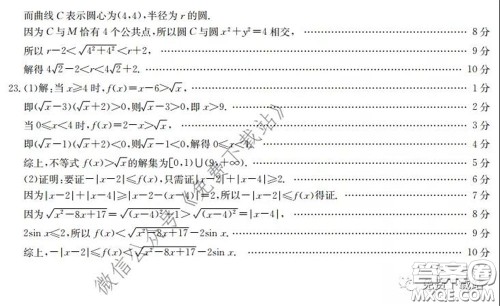 而曲线C表示圆心为(4,4),半径为r的圆.
因为C与M恰有4个公共点,所以圆C与圆x²+y²=4相交, 8分
所以r-2<√(4²+4²)<r+2, 9分
解得4√2-2<r<4√2+2. 10分
23.(1)解:当x≥4时,f(x)=x-6>√x, 1分
即(√x-3)(√x+2)>0,则√x-3>0,即x>9. 2分
当0≤x<4时,f(x)=2-x>√x, 3分
即(√x-1)(√x+2)<0,则√x-1<0,解得0≤x<1. 4分
综上,不等式f(x)>√x的解集为[0,1)∪(9,+∞). 5分
(2)证明:要证-|x-2|≤f(x),只需证|x-2|+|x-4|≥2. 6分
因为|x-2|+|x-4|≥|x-2-(x-4)|=2,所以-|x-2|≤f(x)得证. 7分
因为√(x²-8x+17)=√((x-4)²+1)>√((x-4)²)=|x-4|, 8分
2sin x≤2,所以f(x)<√(x²-8x+17)-2sin x. 9分
综上,-|x-2|≤f(x)<√(x²-8x+17)-2sin x. 10分
微信公众号《免费下载站》
免费下载站
答案圈
MXQE.COM